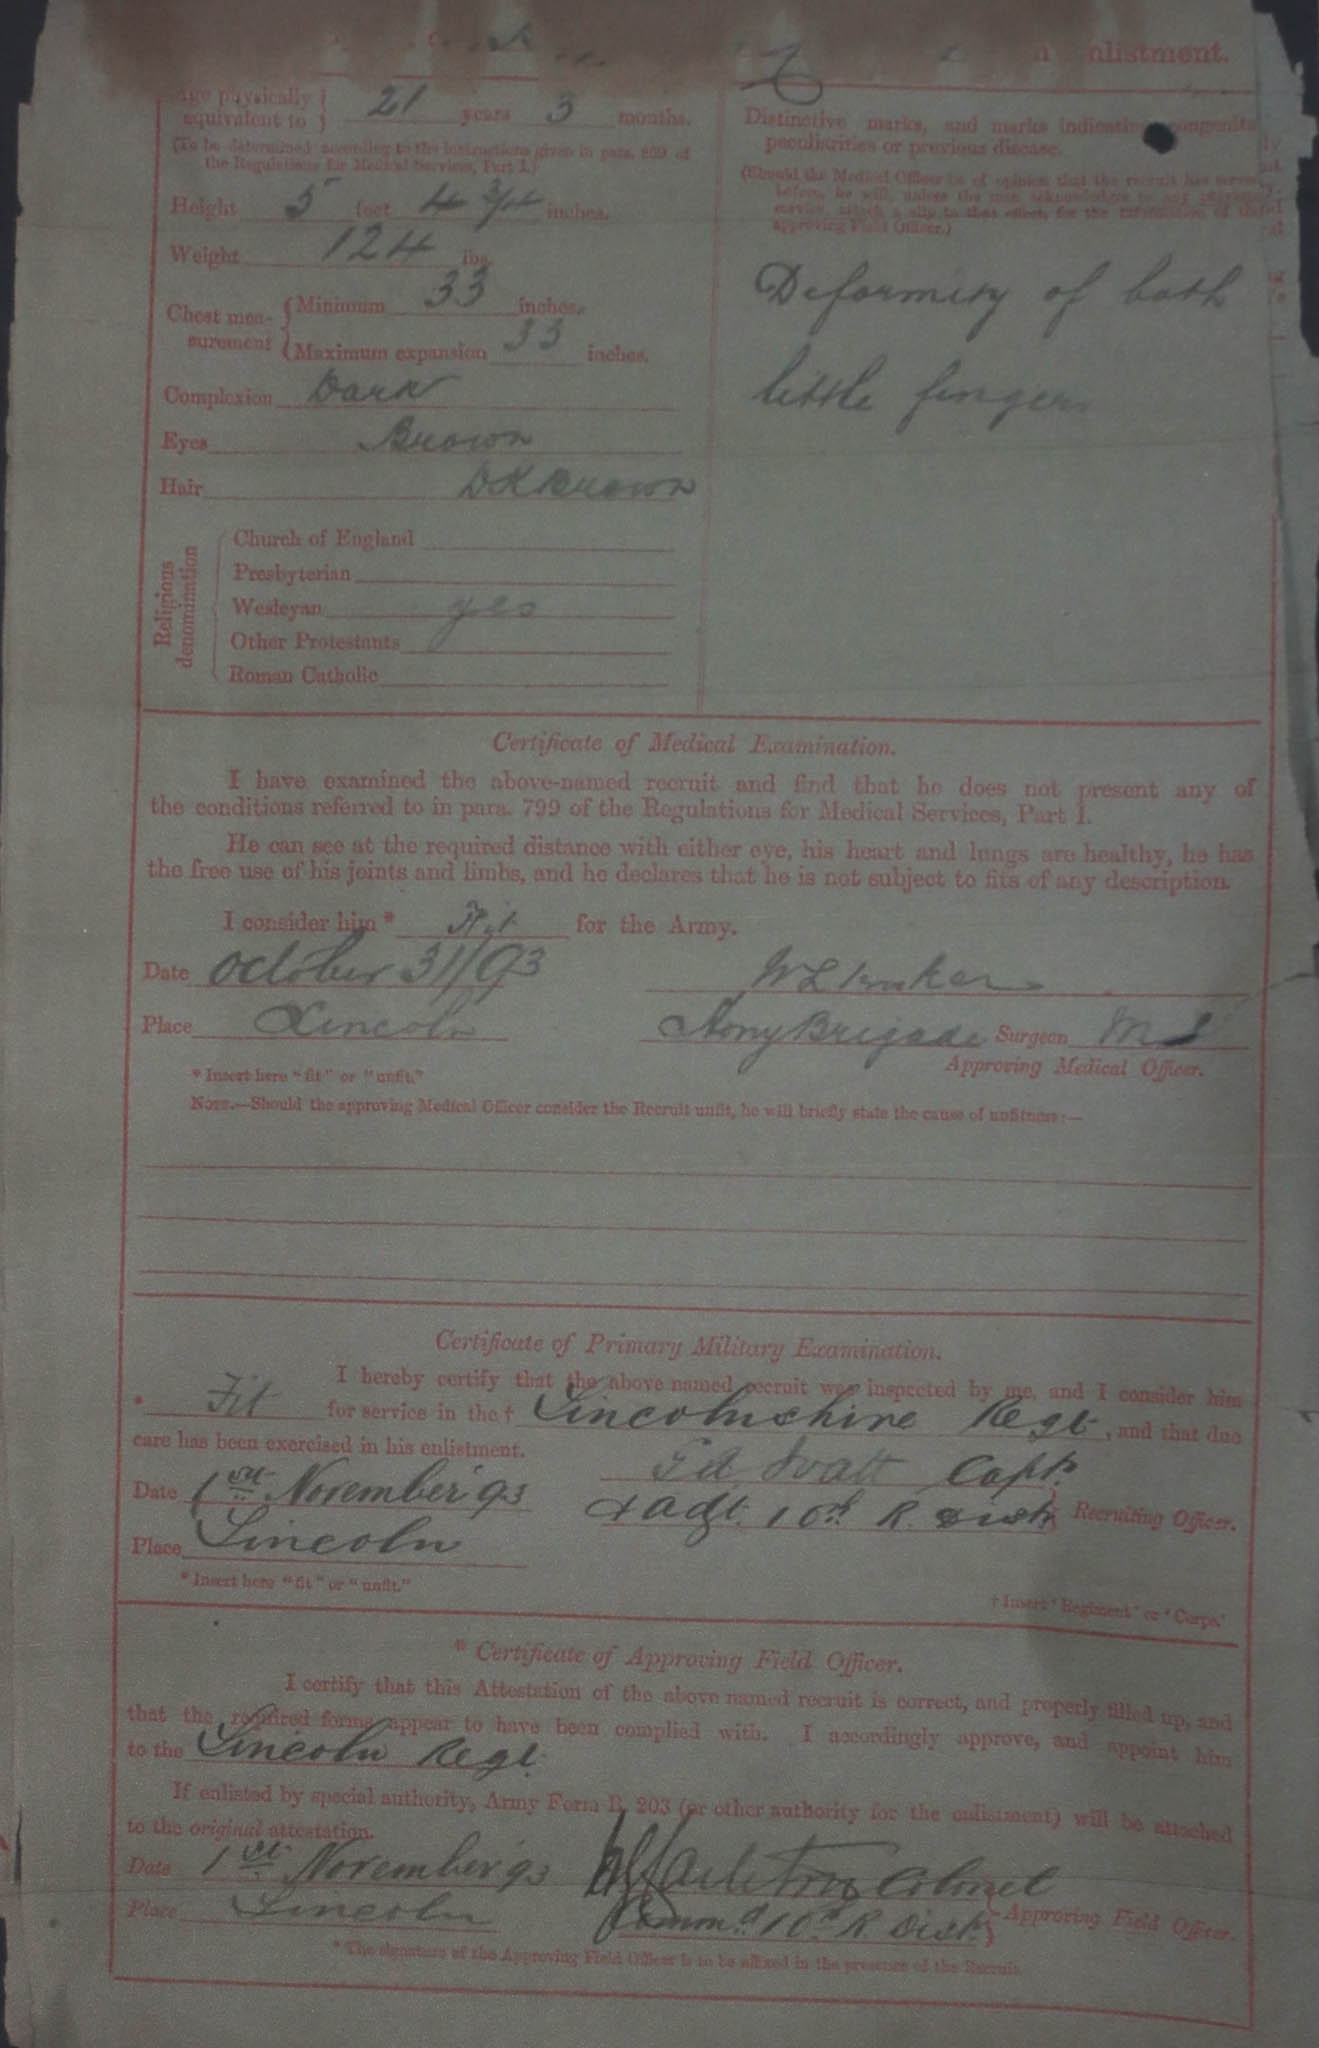 nlistment.
Age physically equivalent to } 21 years 3 months.
(To be determined according to the instructions given in para. 809 of
the Regulations for Medical Services, Part I.)
Height 5 feet 4 3/4 inches.
Weight 124 lbs.
Chest mea-surement { Minimum 33 inches.
Maximum expansion 33 inches.
Complexion Dark
Eyes Brown
Hair DK Brown
Religious denomination
Church of England
Presbyterian
Wesleyan yes
Other Protestants
Roman Catholic
Distinctive marks, and marks indicating congenital
peculiarities or previous disease.
(Should the Medical Officer be of opinion that the recruit has served
before, he will, unless the man acknowledges to any previous
service, attach a slip to that effect, for the information of the
approving Field Officer.)
Deformity of both
little fingers
Certificate of Medical Examination.
I have examined the above-named recruit and find that he does not present any of
the conditions referred to in para. 799 of the Regulations for Medical Services, Part I.
He can see at the required distance with either eye, his heart and lungs are healthy, he has
the free use of his joints and limbs, and he declares that he is not subject to fits of any description.
I consider him * Fit for the Army.
Date October 31/93
Place Lincoln Brigade Surgeon
Approving Medical Officer.
* Insert here "fit" or "unfit."
NOTE.—Should the approving Medical Officer consider the Recruit unfit, he will briefly state the cause of unfitness:—
Certificate of Primary Military Examination.
I hereby certify that the above named recruit was inspected by me, and I consider him
* Fit for service in the † Lincolnshire Regt, and that due
care has been exercised in his enlistment.
Capt.
Date 1st November 93 & adjt. 10th R. Dist. } Recruiting Officer.
Place Lincoln
* Insert here "fit" or "unfit."
† Insert 'Regiment' or 'Corps.'
* Certificate of Approving Field Officer.
I certify that this Attestation of the above named recruit is correct, and properly filled up, and
that the required forms appear to have been complied with. I accordingly approve, and appoint him
to the Lincoln Regt.
If enlisted by special authority, Army Form B. 203 (or other authority for the enlistment) will be attached
to the original attestation.
Date 1st November 93 Colonel
Place Lincoln Commd. 10th R. Dist. } Approving Field Officer.
* The signature of the Approving Field Officer is to be affixed in the presence of the Recruit.